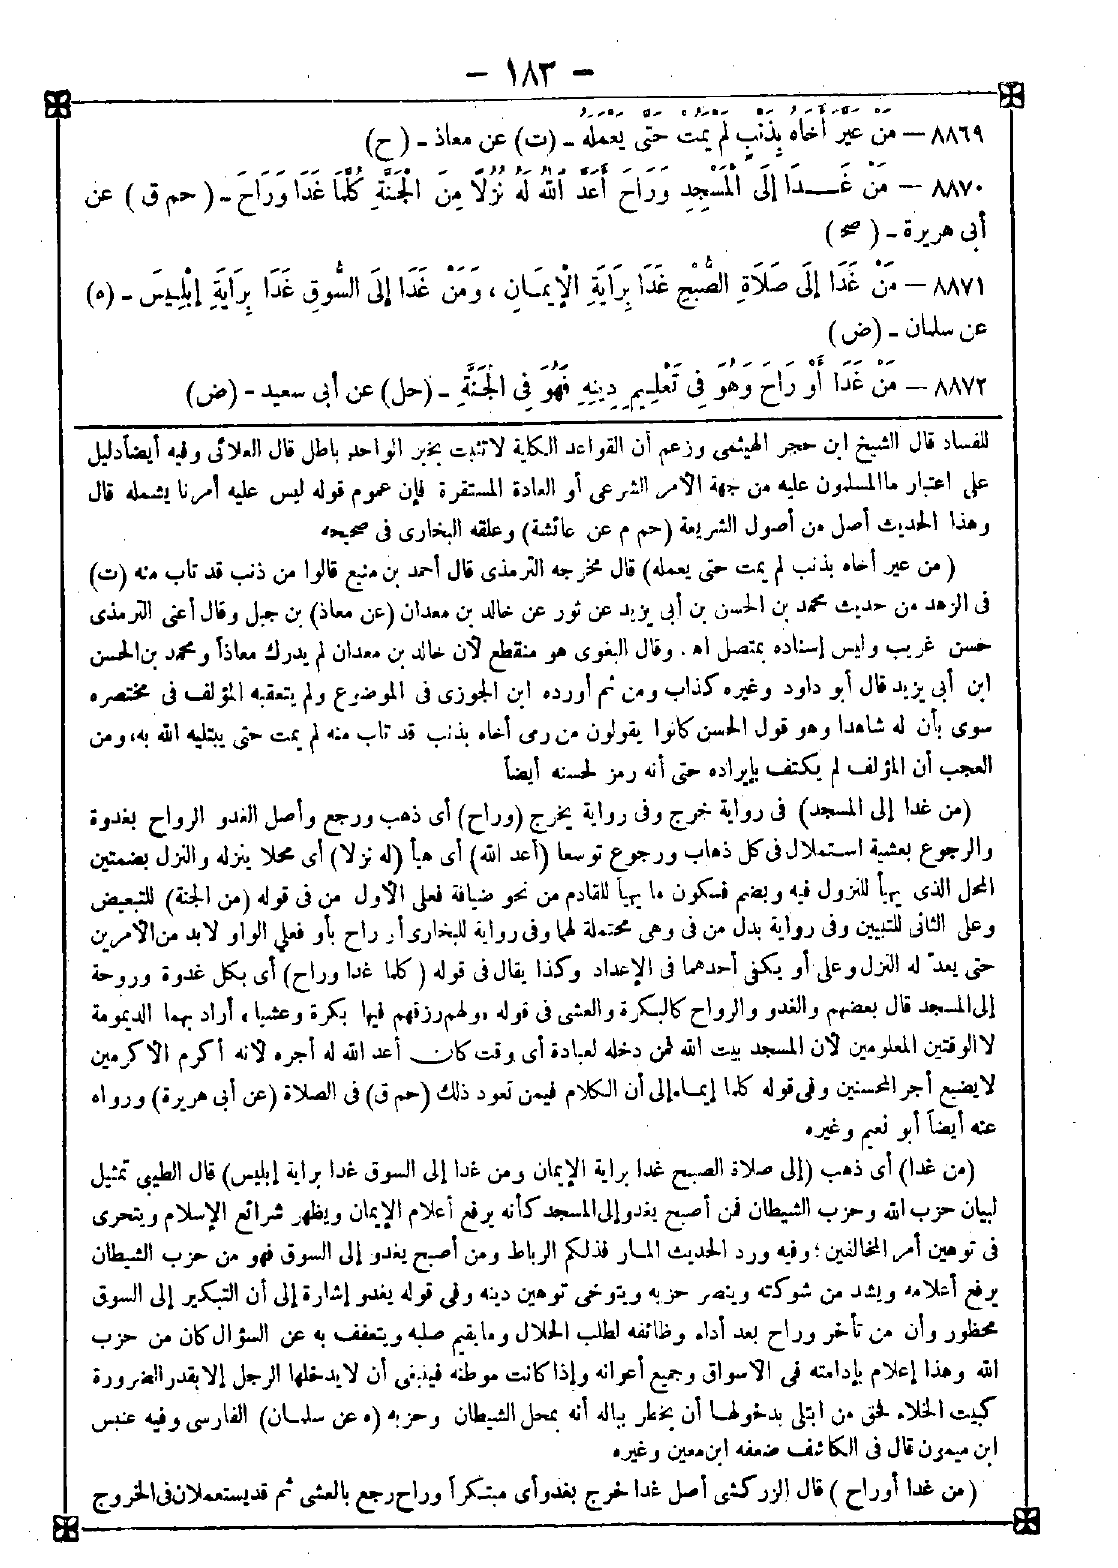 – ١٨٣ –
٨٨٦٩ – مَنْ عَيَّرَ أَخَاهُ بِذَنْبٍ لَمْ يَمُتْ حَتَّى يَعْمَلَهُ – (ت) عن معاذ – (ح)
٨٨٧٠ – مَنْ غَدَا إِلَى الْمَسْجِدِ وَرَاحَ أَعَدَّ اللهُ لَهُ نُزُلًا مِنَ الْجَنَّةِ كُلَّمَا غَدَا وَرَاحَ – (حم ق) عن
أبى هريرة – (صح)
٨٨٧١ – مَنْ غَدَا إِلَى صَلَاةِ الصُّبْحِ غَدَا بِرَايَةِ الْإِيمَانِ ، وَمَنْ غَدَا إِلَى السُّوقِ غَدَا بِرَايَةِ إِبْلِيسَ – (ه)
عن سلمان – (ض)
٨٨٧٢ – مَنْ غَدَا أَوْ رَاحَ وَهُوَ فِى تَعْلِيمِ دِينِهِ فَهُوَ فِى الْجَنَّةِ – (حل) عن أبى سعيد – (ض)
للفساد قال الشيخ ابن حجر الهيثمى وزعم أن القواعد الكلية لا تثبت بخبر الواحد باطل قال العلائى وفيه أيضاً دليل
على اعتبار ما المسلمون عليه من جهة الأمر الشرعى أو العادة المستقرة فإن عموم قوله ليس عليه أمرنا يشمله قال
وهذا الحديث أصل من أصول الشريعة (حم م عن عائشة) وعلقه البخارى فى صحيحه
(من عير أخاه بذنب لم يمت حتى يعمله) قال مخرجه الترمذى قال أحمد بن منيع قالوا من ذنب قد تاب منه (ت)
فى الزهد من حديث محمد بن الحسن بن أبى يزيد عن ثور عن خالد بن معدان (عن معاذ) بن جبل وقال أعنى الترمذى
حسن غريب وليس إسناده بمتصل اه. وقال البغوى هو منقطع لأن خالد بن معدان لم يدرك معاذاً ومحمد بن الحسن
ابن أبى يزيد قال أبو داود وغيره كذاب ومن ثم أورده ابن الجوزى فى الموضوع ولم يتعقبه المؤلف فى مختصره
سوى بأن له شاهدا وهو قول الحسن كانوا يقولون من رمى أخاه بذنب قد تاب منه لم يمت حتى يبتليه الله به، ومن
العجب أن المؤلف لم يكتف بإيراده حتى أنه رمز لحسنه أيضاً
(من غدا إلى المسجد) فى رواية خرج وفى رواية يخرج (وراح) أى ذهب ورجع وأصل الغدو الرواح بغدوة
والرجوع بعشية استعملال فى كل ذهاب ورجوع توسعا (أعد الله) أى هيأ (له نزلا) أى محلا ينزله والنزل بضمتين
المحل الذى يهيأ للنزول فيه وبضم فسكون ما يهيأ للقادم من نحو ضيافة فعلى الأول من فى قوله (من الجنة) للتبعيض
وعلى الثانى للتبيين وفى رواية بدل من فى وهى محتملة لهما وفى رواية للبخارى أو راح بأو فعلى الواو لابد من الأمرين
حتى يعدّ له النزل وعلى أو يكفى أحدهما فى الإعداد وكذا يقال فى قوله (كلما غدا وراح) أى بكل غدوة وروحة
إلى المسجد قال بعضهم والغدو والرواح كالبكرة والعشى فى قوله «ولهم رزقهم فيها بكرة وعشيا» أراد بهما الديمومة
لا الوقتين المعلومين لأن المسجد بيت الله فمن دخله لعبادة أى وقت كان أعد الله له أجره لأنه أكرم الأكرمين
لا يضيع أجر المحسنين وفى قوله كلما إيماء إلى أن الكلام فيمن تعود ذلك (حم ق) فى الصلاة (عن أبى هريرة) ورواه
عنه أيضاً أبو نعيم وغيره
(من غدا) أى ذهب (إلى صلاة الصبح غدا براية الإيمان ومن غدا إلى السوق غدا براية إبليس) قال الطيبى تمثيل
لبيان حزب الله وحزب الشيطان فمن أصبح يغدو إلى المسجد كأنه يرفع أعلام الإيمان ويظهر شرائع الإسلام ويتحرى
فى توهين أمر المخالفين؛ وفيه ورد الحديث المار فذلكم الرباط ومن أصبح يغدو إلى السوق فهو من حزب الشيطان
يرفع أعلامه ويشد من شوكته وينصر حزبه ويتوخى توهين دينه وفى قوله يغدو إشارة إلى أن التبكير إلى السوق
محظور وأن من تأخر وراح بعد أداء وظائفه لطلب الحلال وما يقيم صلبه ويتعفف به عن السؤال كان من حزب
الله وهذا إعلام بإدامته فى الأسواق وجميع أعوانه وإذا كانت موطنه فينبغى أن لا يدخلها الرجل إلا بقدر الضرورة
كبيت الخلاء فحق من ابتلى بدخولها أن يخطر بباله أنه بمحل الشيطان وحزبه (ه عن سلمان) الفارسى وفيه عنبس
ابن ميمون قال فى الكاشف ضعفه ابن معين وغيره
(من غدا أو راح) قال الزركشى أصل غدا خرج بغدو أى مبتكراً وراح رجع بالعشى ثم قد يستعملان فى الخروج